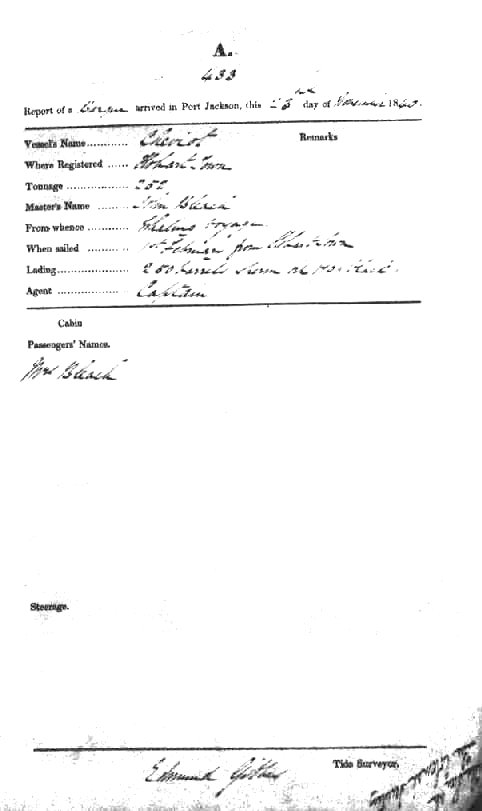 A.
433
Report of a Barque arrived in Port Jackson, this 23rd day of November 1860.
Vessel's Name............ Cheviot Remarks
Where Registered ...... Hobart Town
Tonnage .................. 252
Master's Name ......... Wm Bleach
From whence ............ Whaling Voyage
When sailed ............ 1st February from Hobart Town
Lading..................... 250 barrels Sperm oil
Agent ..................... Captain
Cabin
Passengers' Names.
Mrs Bleach
Steerage.
Tide Surveyor,
Edmund